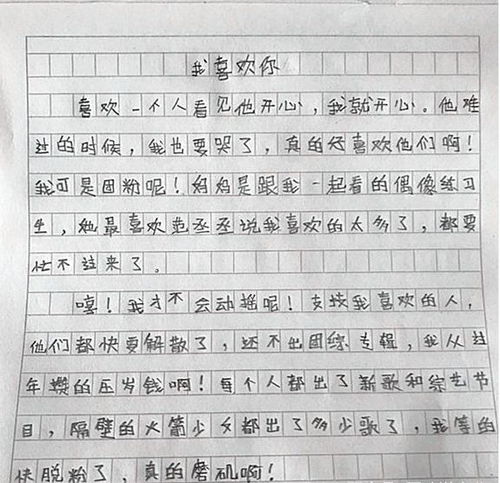 我喜欢你
喜欢一个人看见他开心，我就开心。他难
过的时候，我也要哭了，真的好喜欢他们啊！
我可是团粉呢！妈妈是跟我一起看的偶像练习
生，她最喜欢范丞丞说我喜欢的太多了，都要
忙不过来了。
嘻！我才不会动摇呢！支持我喜欢的人，
他们都快要解散了，还不出团综专辑，我从过
年攒的压岁钱啊！每个人都出了新歌和综艺节
目，隔壁的火箭少女都出了多少歌了，我等的
快脱粉了，真的磨矶啊！